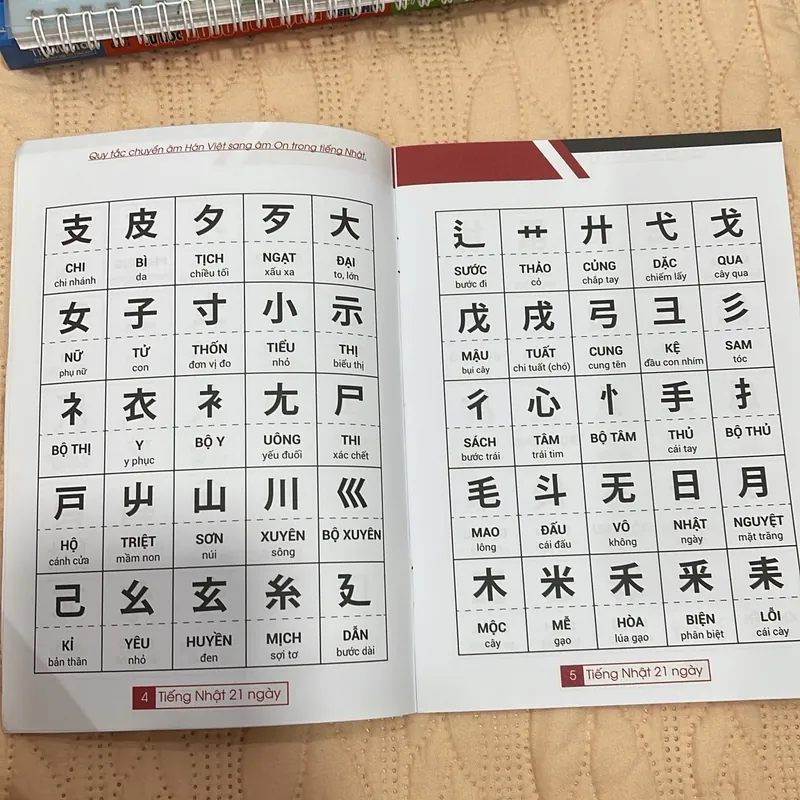 Quy tắc chuyển âm Hán Việt sang âm On trong tiếng Nhật.
支 皮 夕 歹 大
CHI BÌ TỊCH NGẠT ĐẠI
chi nhánh da chiều tối xấu xa to, lớn
女 子 寸 小 示
NỮ TỬ THỐN TIỂU THỊ
phụ nữ con đơn vị đo nhỏ biểu thị
礻 衣 衤 尢 尸
BỘ THỊ Y BỘ Y UÔNG THI
y phục yếu đuối xác chết
戸 屮 山 川 巛
HỘ TRIỆT SƠN XUYÊN BỘ XUYÊN
cánh cửa mầm non núi sông
己 幺 玄 糸 廴
KỈ YÊU HUYỀN MỊCH DẪN
bản thân nhỏ đen sợi tơ bước dài
4 Tiếng Nhật 21 ngày
辶 艹 廾 弋 戈
SƯỚC THẢO CỦNG DẶC QUA
bước đi cỏ chắp tay chiếm lấy cây qua
戊 戌 弓 彐 彡
MẬU TUẤT CUNG KỆ SAM
bụi cây chi tuất (chó) cung tên đầu con nhím tóc
彳 心 忄 手 扌
SÁCH TÂM BỘ TÂM THỦ BỘ THỦ
bước trái trái tim cái tay
毛 斗 无 日 月
MAO ĐẤU VÔ NHẬT NGUYỆT
lông cái đấu không ngày mặt trăng
木 米 禾 釆 耒
MỘC MỄ HÒA BIỆN LỖI
cây gạo lúa gạo phân biệt cái cày
5 Tiếng Nhật 21 ngày